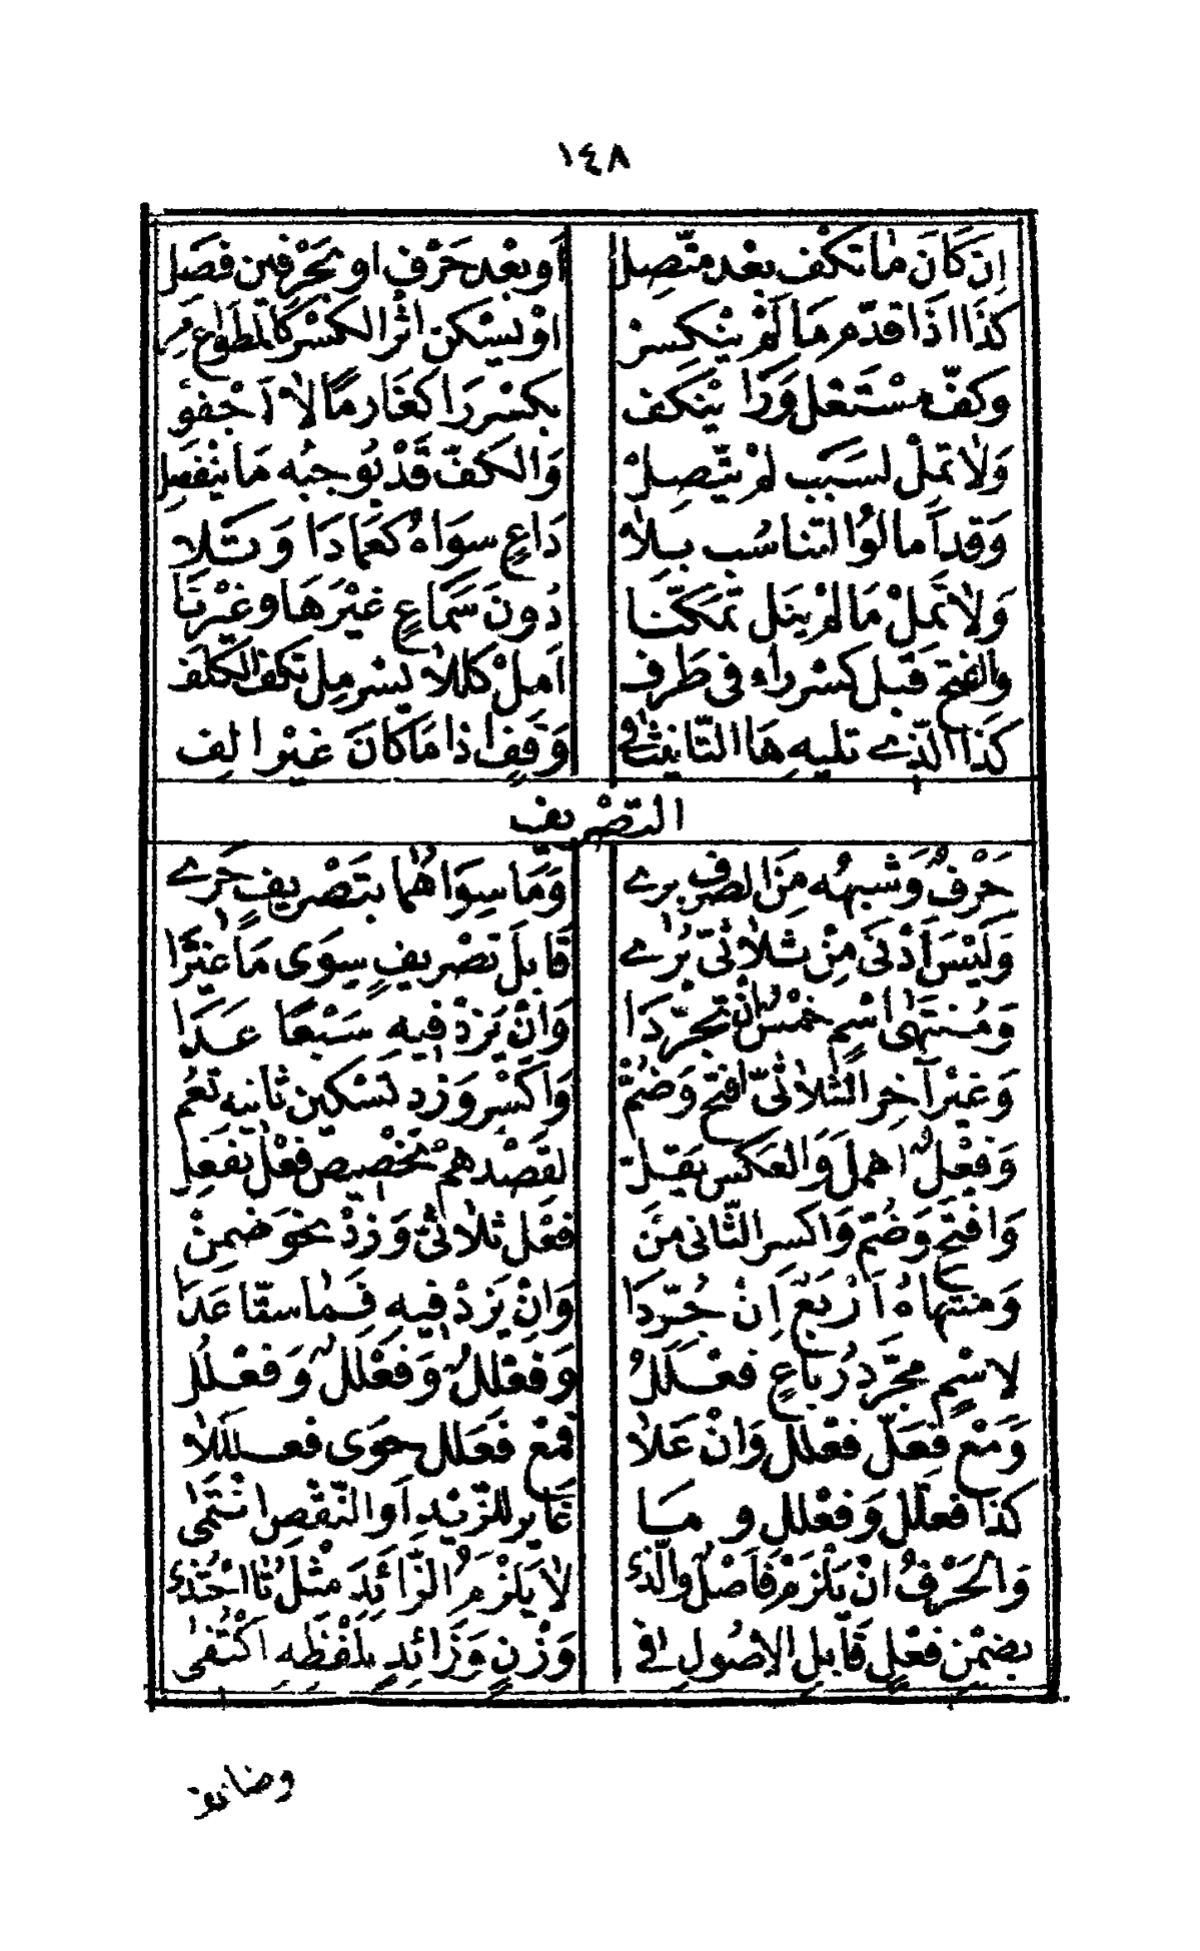 ١٤٨
اِن كَانَ مٰا تَكْفّ بعْد متّصِل اَو بعْد حَرْف او بحَرْفين فصَل
كَذَا اذَا قدّم مَا لَمْ يَنْكسرْ اوْ يسْكن اثْر الكسْر كالمطواع مر
وَكفّ مسْتَعْل وَرَا يَنْكف بكسْر رَا كغَارمًا لاٰ اَجْفو
وَلاٰ تملْ لسَبَب لمْ يتّصِلْ وَالكفّ قَدْ يُوجبُه مَا ينْفَصِل
وَقد اَمالوُا لتناسُب بِلاٰ دَاعٍ سوَاهُ كعمَادَا وَتَلا
وَلاٰ تُملْ مَا لمْ ينَل تَمكّنَا دُونَ سَمَاعٍ غيْرَ هَا وغيْر نَا
وَالفتح قَبل كسْر رَاء فى طَرف اَمِلْ كلَلاٰ يسْر مِل تكف الكلَف
كَذَا الّذے تليه هَا التّانيث فى وَقفٍ اذا مَا كَانَ غيْر الف
التصْريف
حَرْفٌ وَشبهُه مِنَ الصرف برے وَمَا سِوَاهُمَا بتَصْريفٍ حَرے
وَلَيْسَ اَدْنَى مِنْ ثلاٰثىّ يُرٰے قَابلَ تصْريفٍ سِوَى مَا غيّرَا
وَمُنتَهٰى اسْم خمْسٌ اِنْ تجَرّدَا وَانْ يُزَدْ فيه فمَا سَبْعًا عَدَا
وَغيْر آخِر الثّلاٰثىّ افتَحْ وَضُمّ وَاكْسر وَزد تسْكين ثانيه تعُم
وَفعُلٌ اهمِلَ وَالعَكس يَقِلّ لقَصْدهمْ تخْصيصَ فعْل بفعِل
وَافتحْ وَضُمّ وَاكسر الثّانى مِنْ فعْل ثلاٰثىّ وَزدْ نحوَ ضُمِنْ
وَمنتهَاهُ اَرْبَعٌ اِنْ جُرّدَا وَانْ يَزدْ فيه فَمٰا ستّا عَدَا
لاِسْمٍ مجَرّد رُبَاعٍ فعْلَلُ وَفعْللٌ وَفعْللٌ وَفعْلُلُ
وَمَع فِعَلّ فعْلَل وَانْ عَلاٰ فمَعْ فعَلل حَوَى فعْلَللاٰ
كذَا فعلّل وَفعْلل و مَا غَايَر للزّيْد اَو النّقْص انْتَمٰى
وَالحَرْفُ انْ يَلْزَمْ فاَصْل وَالّذے لاٰ يَلزَمُ الزّائدَ مثْلُ تَا احْتذے
بضمْنِ فعْلٍ قَابِلِ الاُصُول فى وَزْنٍ وَزَائِدٍ بلَفْظِه اكْتُفى
وضاعف